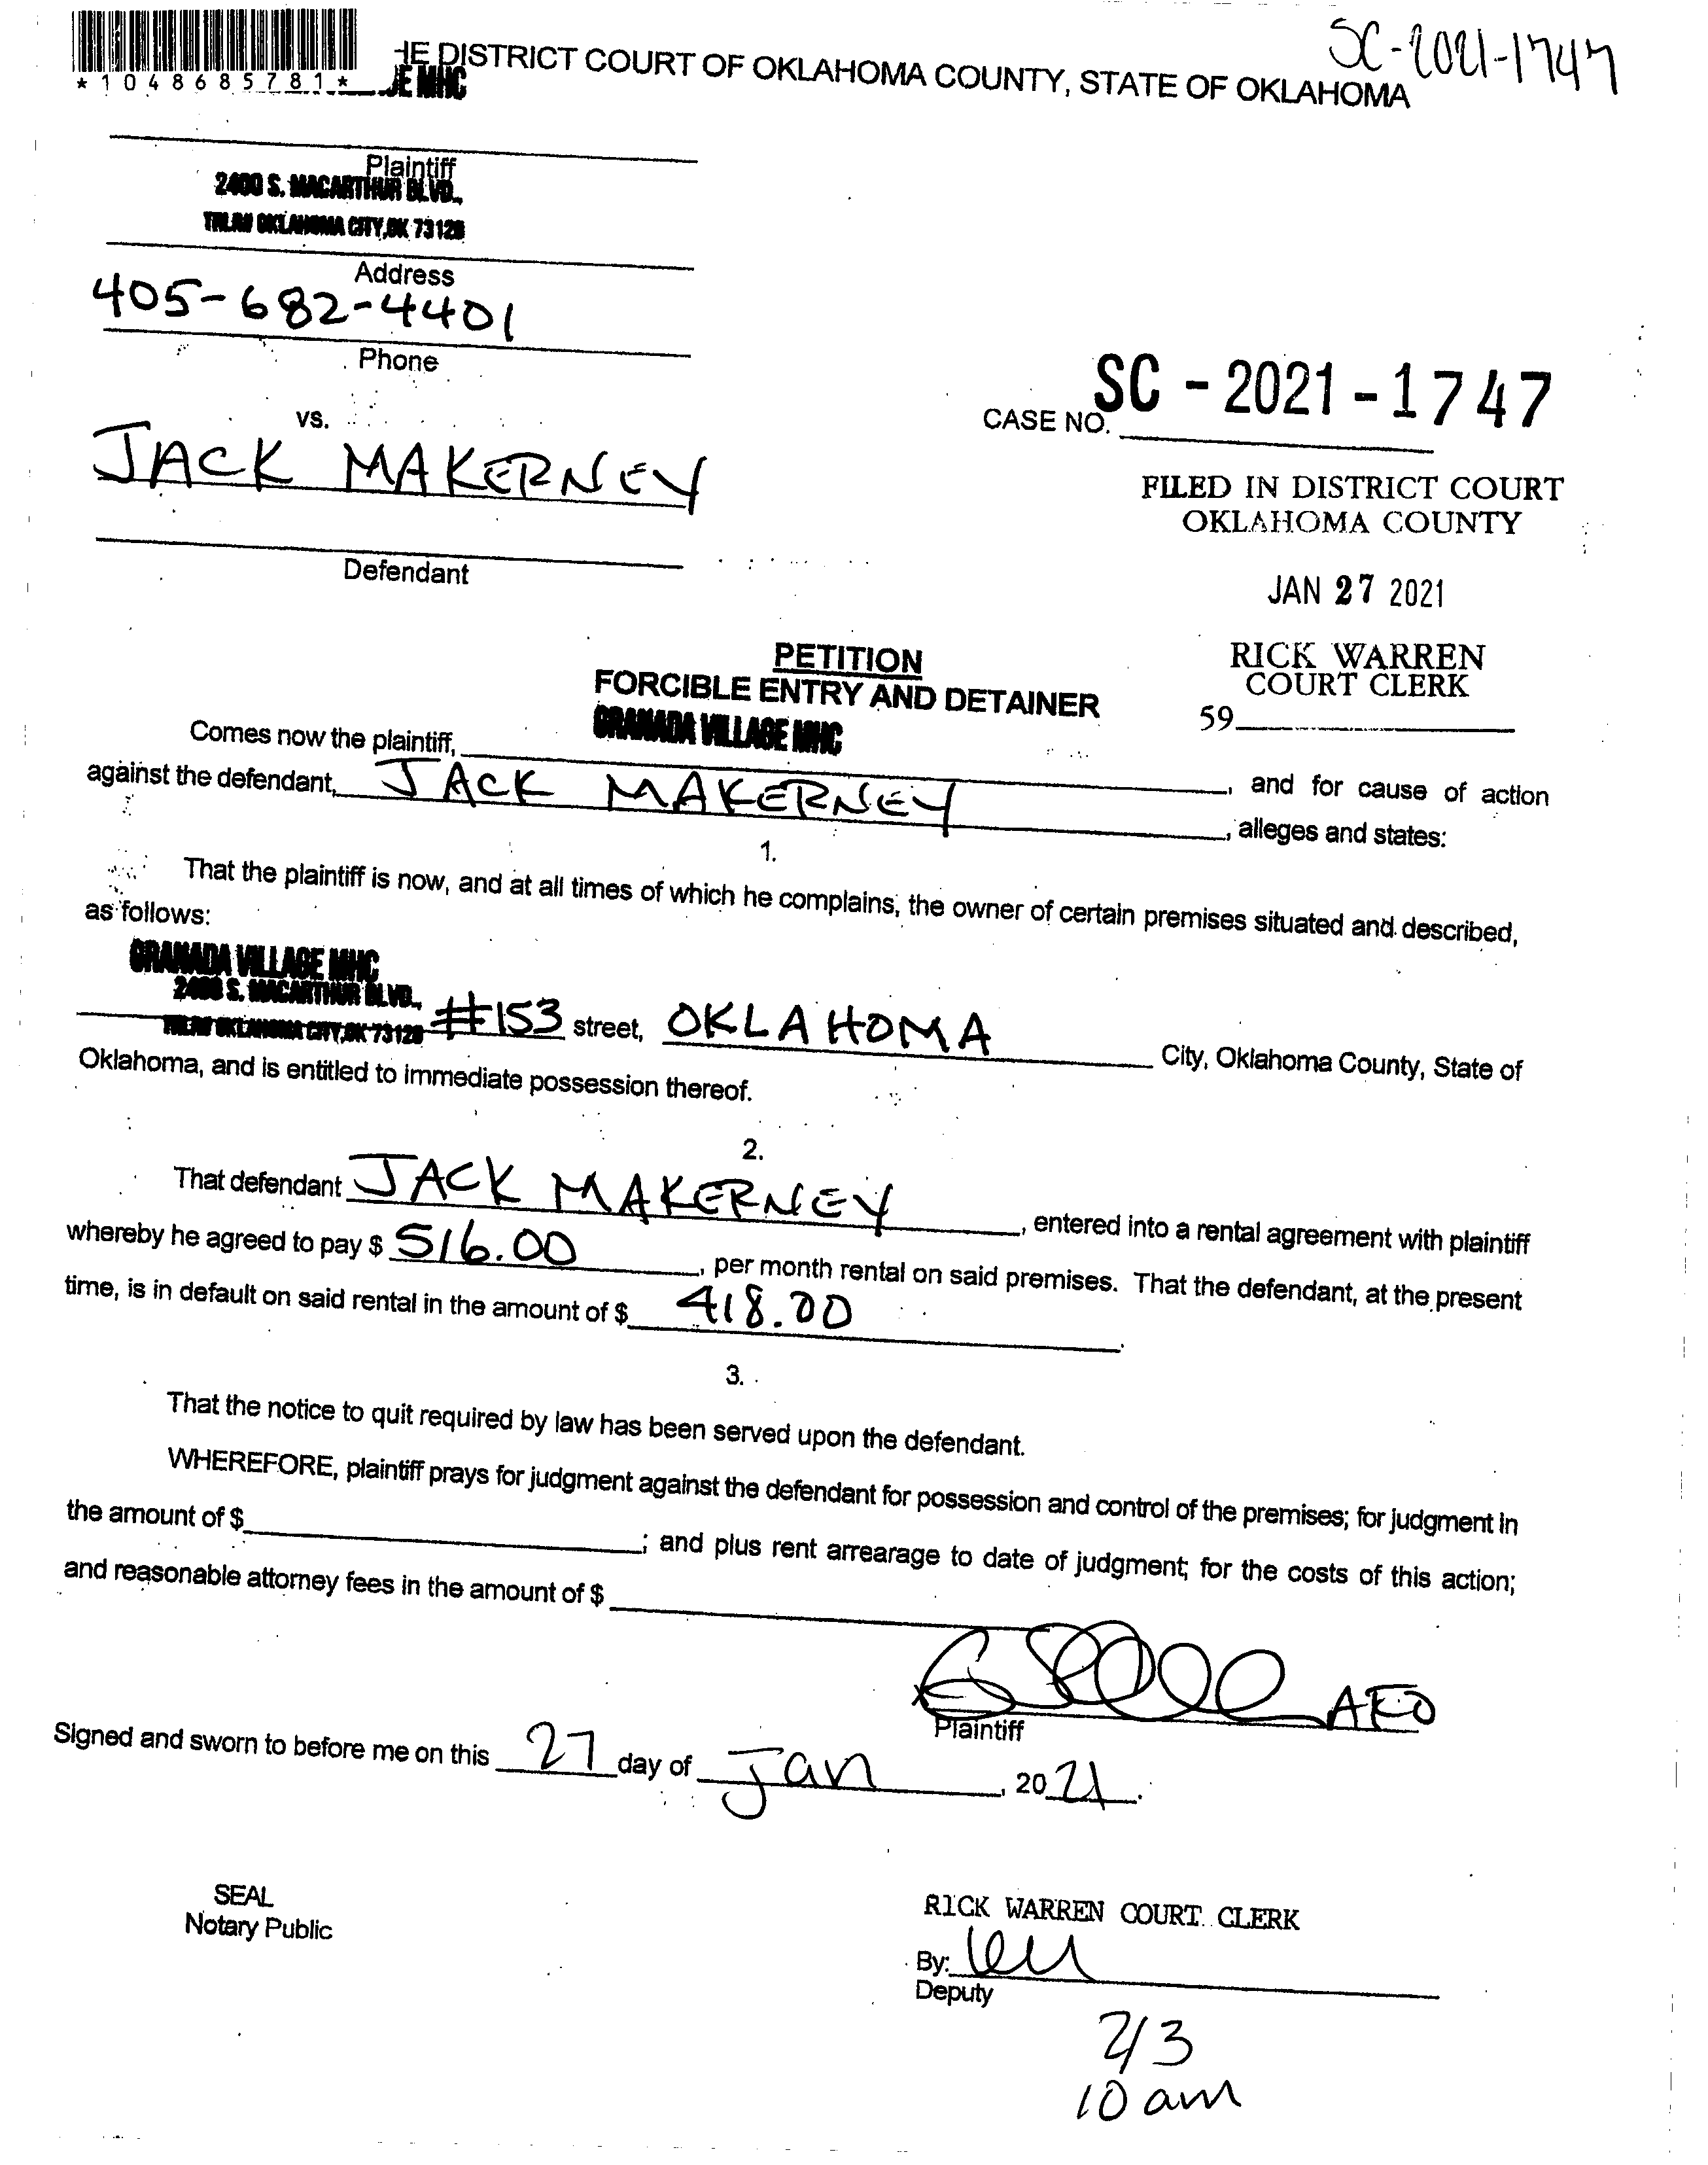 SC-2021-1747
*1048685781*
HE DISTRICT COURT OF OKLAHOMA COUNTY, STATE OF OKLAHOMA
MHC
Plaintiff
2400 S. MACARTHUR BLVD.,
OKLAHOMA CITY, OK 73128
Address
405-682-4401
Phone
vs.
JACK MAKERNEY
Defendant
CASE NO. SC - 2021 - 1747
FILED IN DISTRICT COURT
OKLAHOMA COUNTY
JAN 27 2021
RICK WARREN
COURT CLERK
59
PETITION
FORCIBLE ENTRY AND DETAINER
Comes now the plaintiff, GRANADA VILLAGE MHC, and for cause of action
against the defendant, JACK MAKERNEY, alleges and states:
1.
That the plaintiff is now, and at all times of which he complains, the owner of certain premises situated and described,
as follows:
GRANADA VILLAGE MHC
2400 S. MACARTHUR BLVD.,
OKLAHOMA CITY, OK 73128 #153 street, OKLAHOMA City, Oklahoma County, State of
Oklahoma, and is entitled to immediate possession thereof.
2.
That defendant JACK MAKERNEY, entered into a rental agreement with plaintiff
whereby he agreed to pay $ 516.00, per month rental on said premises. That the defendant, at the present
time, is in default on said rental in the amount of $ 418.00.
3.
That the notice to quit required by law has been served upon the defendant.
WHEREFORE, plaintiff prays for judgment against the defendant for possession and control of the premises; for judgment in
the amount of $; and plus rent arrearage to date of judgment; for the costs of this action;
and reasonable attorney fees in the amount of $
Plaintiff
Signed and sworn to before me on this 27 day of Jan, 2021.
SEAL
Notary Public
RICK WARREN COURT CLERK
By:
Deputy
2/3
10 am